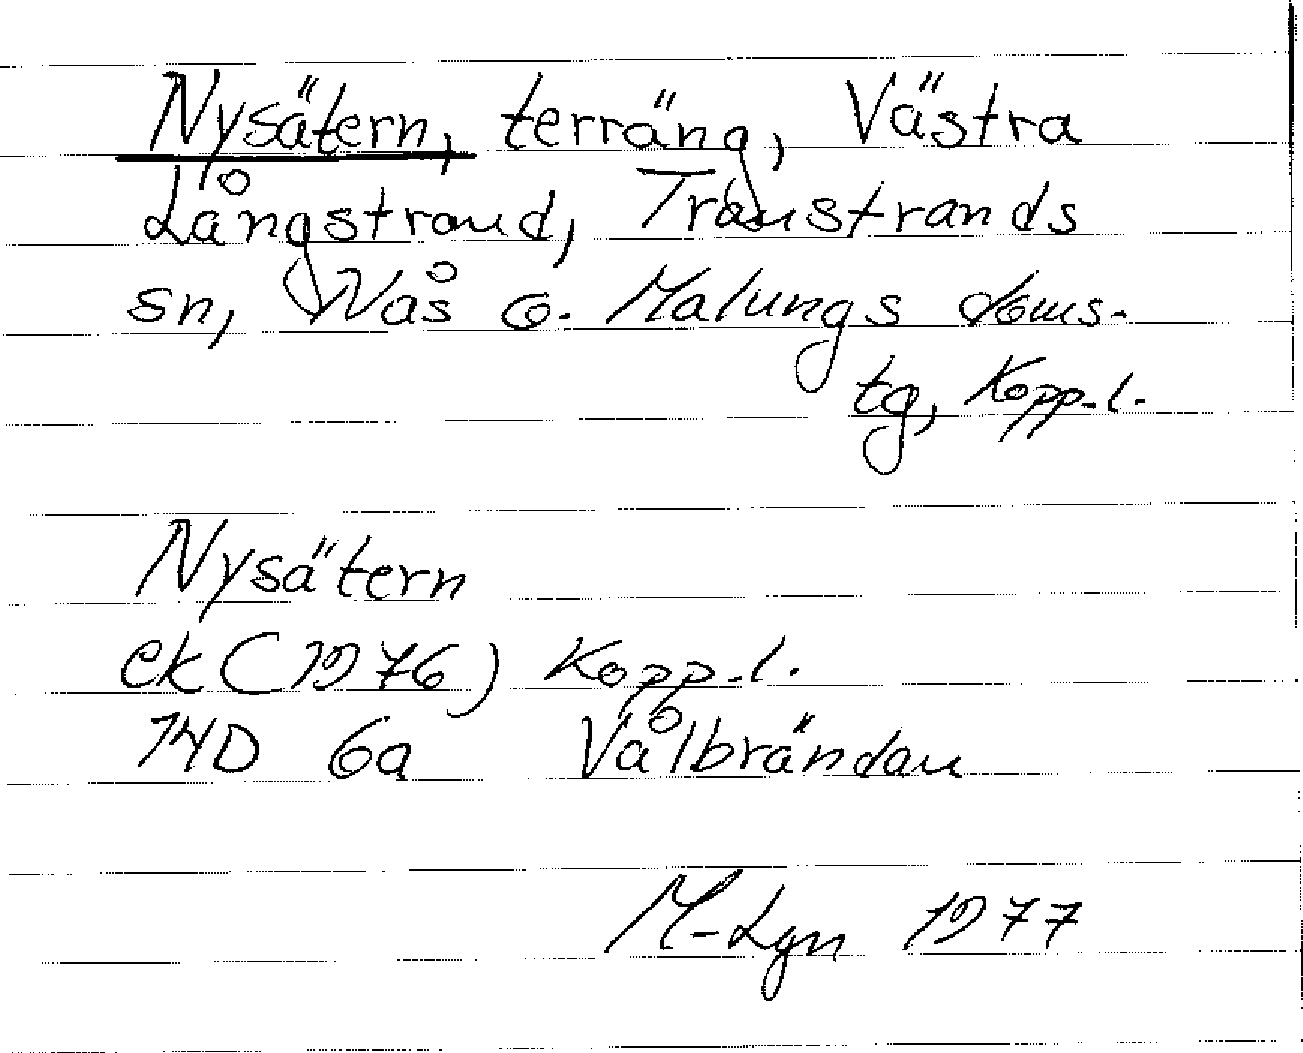 Nysätern, terräng, Västra
Långstrand, Transtrands
sn, Nås o. Malungs doms-
tg, Kopp. l.
Nysätern
ek (1976) Kopp. l.
14D 6a Vålbrändan
M-Lgn 1977